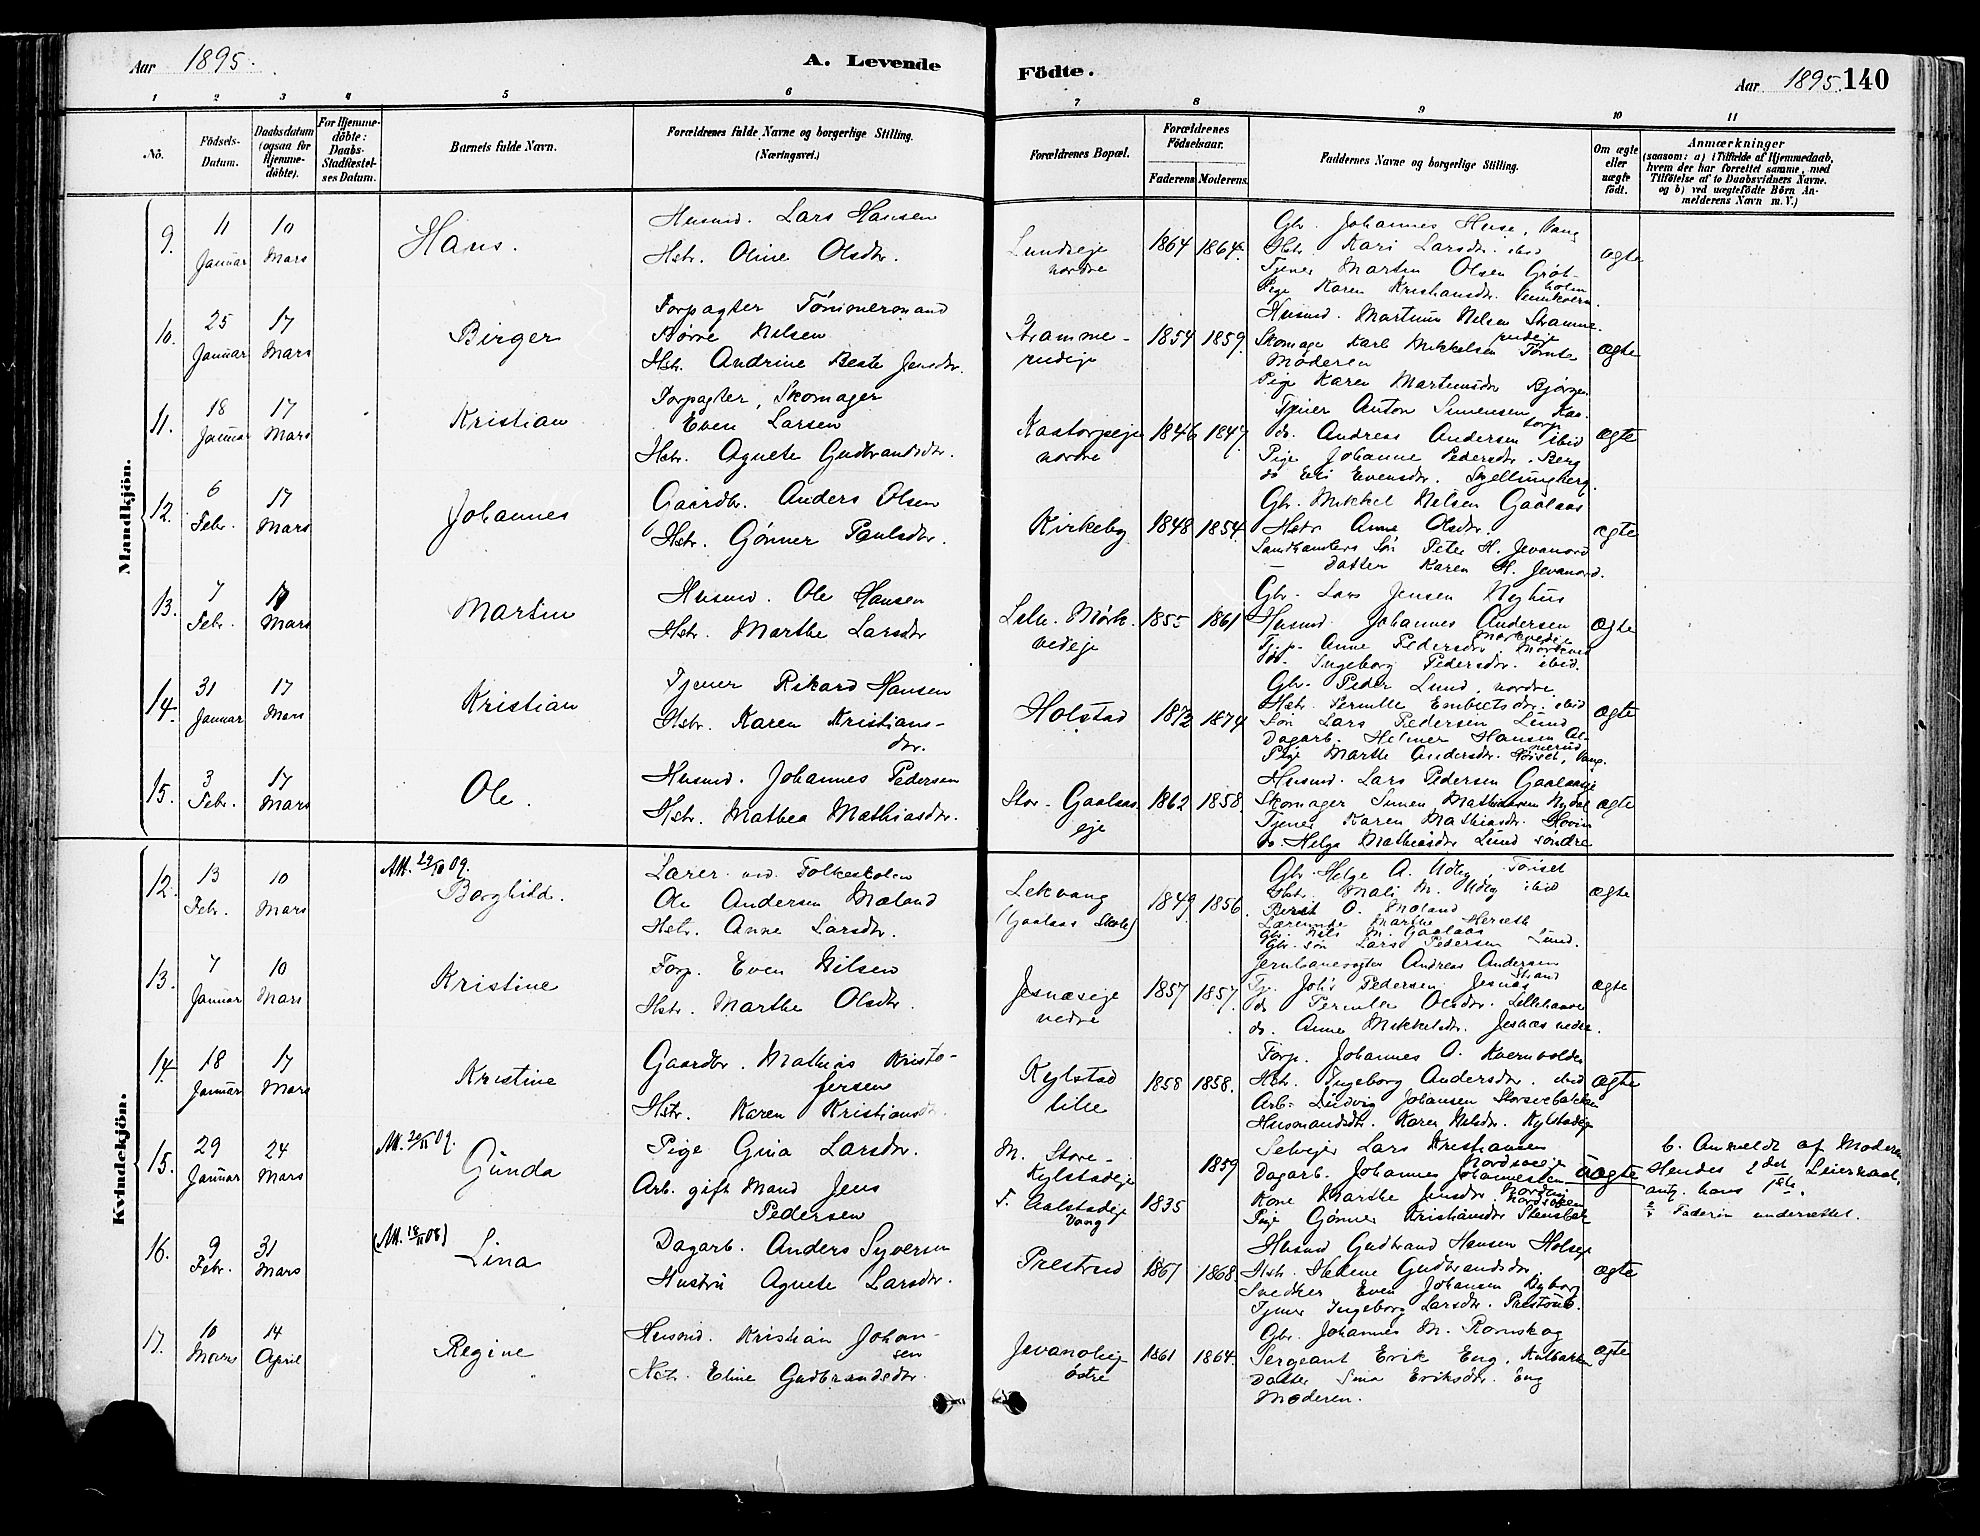 Aar 1895.
A. Levende
Födte.
Aar 1895. 140
1 2 3 4 5 6 7 8 9 10 11
No.
Födsels-
Datum.
Daabsdatum
(ogsaa for
Hjemme-
döbte).
For Hjemme-
döbte:
Daabs-
Stadfæstel-
ses Datum.
Barnets fulde Navn.
Forældrenes fulde Navne og borgerlige Stilling.
(Næringsvei.)
Forældrenes Bopæl.
Forældrenes
Födselsaar.
Faderens Moderens.
Faddernes Navne og borgerlige Stilling.
Om ægte
eller
uægte
födt.
Anmærkninger
(saasom: a) i Tilfælde af Hjemmedaab,
hvem der har forrettet samme, med
Tilföielse af to Daabsvidners Navne,
og b) ved uægtefödte Börn An-
melderens Navn m. V.)
Mandkjön.
9.
11
Januar
10
Mars
Hans.
Husmd. Lars Hansen
Hstr. Oline Olsdtr.
Lundseje
nordre
1864
1864.
Gbr. Johannes Huse, Vang
Hstr. Kari Larsdtr. ibid
Tjener Martin Olsen Grøt-
holm
Pige Karen Kristiansdtr.
ægte
10.
25
Januar
17
Mars
Birger
Forpagter Tømmermand
Børre Nilsen
Hstr. Andrine Beate Jensdtr.
Stramme-
rudeje
1854
1859.
Husmd. Martinus Nilsen Stramme-
rudeje
Skomager Karl Mikkelsen Tomte
Moderen
Pige Karen Martinusdtr Bjørge
ægte
11.
18
Januar
17
Mars
Kristian
Forpagter, Skomager
Even Larsen
Hstr. Agnete Gudbrandsdtr.
Kaatorpeje
nordre
1846
1847.
Tjener Anton Simensen Kaa-
torp
do. Andreas Andersen ibid
Pige Johanne Pedersdtr. Berg
do Eli Evensdtr. Skjellungberg.
ægte
12.
6
Febr.
17
Mars
Johannes
Gaardbr. Anders Olsen
Hstr. Gønner Paulsdtr.
Kirkeby
1848
1854.
Gbr. Mikkel Nilsen Gaalaas
Hstr Anne Olsdtr.
Landhandlers Søn Peter H. Jevanord
— Datter Karen H. Jevanord.
ægte
13.
7
Febr.
17
Mars
Martin
Husmd. Ole Hansen
Hstr. Marthe Larsdtr
Lille-Mørk-
vedeje
1855
1861
Gbr. Lars Jensen Nyhus
Husmd. Johannes Andersen
Mørkvedeje
Tj.p. Anne Pedersdtr. Mørkved
do. Ingeborg Pedersdtr. ibid.
ægte
14.
31
Januar
17
Mars
Kristian
Tjener Rikard Hansen
Hstr. Karen Kristians-
dtr.
Holstad
1872
1874
Gbr. Peder Lund, nordre
Hstr. Pernille Embretsdtr. ibid
Søn Lars Pedersen Lund
Dagarb. Helmer Hansen Al-
merud
Pige Marthe Andersdtr. Vang.
ægte
15.
3
Febr.
17
Mars
Ole.
Husmd. Johannes Pedersen
Hstr. Mathea Mathiasdtr.
Stor-Gaalaas
eje
1862
1858.
Husmd. Lars Pedersen Gaalaaseje
Skomager Simen Mathiassen Nydal
Tjener Karen Mathiasdtr. Hovin
do. Helga Mathiasdtr Lund søndre
ægte
Kvindekjön.
12.
13
Febr.
10
Mars
Att. 29/10 09.
Borghild.
Lærer ved Folkeskolen
Ole Andersen Mæland
Hstr. Anne Larsdtr.
Lekvang
(Gaalaas Skole)
1849
1856.
Gbr. Helge A. Udby, Tønset
Hstr. Mali M. Udby ibid
Berit O. Mæland
Lærerinde Marthe Herseth
Gbr. Nils M. Gaalaas
Gbr. søn Lars Pedersen Lund.
ægte
13.
7
Januar
10
Mars
Kristine
Forp. Even Nilsen
Hstr. Marthe Olsdtr.
Jesnæseje
nedre
1857
1857.
Jernbanevogter Andreas Andersen
Strand
Tj. Johs Pedersen Jesnæs
do Pernille Olsdtr. Lillehaave
do. Anne Mikkelsdtr. Jesnæs nedre.
ægte
14.
18
Januar
17
Mars
Kristine
Gaardbr. Mathias Kristo-
fersen
Hstr. Karen Kristiansdtr
Kylstad
lille
1858
1858.
Forp. Johannes O. Kvernvolden
Hstr. Ingeborg Andersdtr. ibid
Arb. Ludvig Johansen Storsvebakken
Husmandsdtr. Karen Nilsdtr. Kylstadeje
ægte
15.
29
Januar
24
Mars
Att. 20/11 09.
Gunda
Pige Gina Larsdtr.
Arb. gift Mand Jens
Pedersen
M. Store-
Kylstadeje
F. Aalstadeje
Vang
1835
1859
Selvejer Lars Kristiansen
Nordsveje
Dagarb. Johannes Johannessen
Kone Marthe Jensdtr.
Pige Gønner Kristiansdtr Stensbak
uægte
b. Anmeldt af Moderen
Hendes 2det Leiermaal,
antg. hans 1ste.
Faderen underrettet.
16.
9
Febr.
31
Mars
(Att. 18/11 08)
Lina
Dagarb. Anders Syversen
Hustru Agnete Larsdtr.
Prestrud
1867
1868.
Husmd Gudbrand Hansen Holseje
Hstr. Helene Gudbrandsdtr.
Snedker Even Johansen Nyborg
Tjener Ingeborg Larsdtr. Prestrud.
ægte
17.
10
Mars
14
April
Regine
Husmd. Kristian Johan-
sen
Hstr. Eline Gudbrandsdtr.
Jevanoleje
østre
1861
1864.
Gbr. Johannes M. Romskog
Sergeant Erik Eng, Kulbakken
Datter Sina Eriksdtr. Eng
Moderen.
ægte